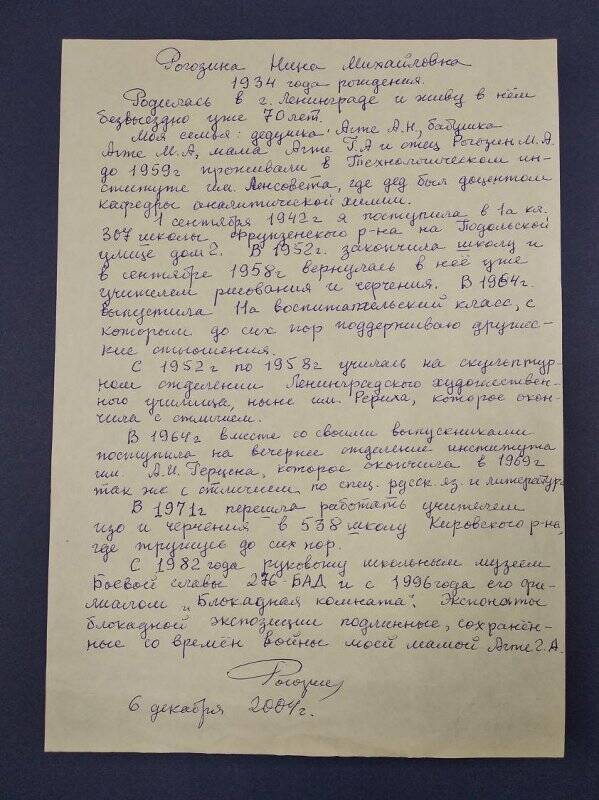 Рогозина Нина Михайловна
1934 года рождения.
Родилась в г. Ленинграде и живу в нём
безвыездно уже 70 лет.
Моя семья: дедушка Агте А.Н, бабушка
Агте М.А, мама Агте Г.А и отец Рогозин М.А.
до 1959г проживали в Технологическом ин-
ституте им. Ленсовета, где дед был доцентом
кафедры аналитической химии.
1 сентября 1942г я поступила в 1а кл.
307 школы Фрунзенского р-на на Подольской
улице дом 2. В 1952г. закончила школу и
в сентябре 1958г вернулась в неё уже
учителем рисования и черчения. В 1964г.
выпустила 11а воспитательский класс, с
которым до сих пор поддерживаю дружес-
кие отношения.
С 1952г по 1958г училась на скульптур-
ном отделении Ленинградского художествен-
ного училища, ныне им. Рериха, которое окон-
чила с отличием.
В 1964г вместе со своими выпускниками
поступила на вечернее отделение института
им. А.И. Герцена, которое окончила в 1969г
так же с отличием по спец. русск яз и литератур
В 1971г перешла работать учителем
изо и черчения в 538 школу Кировского р-на,
где тружусь до сих пор.
С 1982 года руковожу школьным музеем
Боевой славы 276 БАД и с 1996 года его фи-
лиалом „Блокадная комната". Экспонаты
блокадной экспозиции подлинные, сохранён-
ные со времён войны моей мамой Агте Г.А.
Рогозин
6 декабря 2004г.